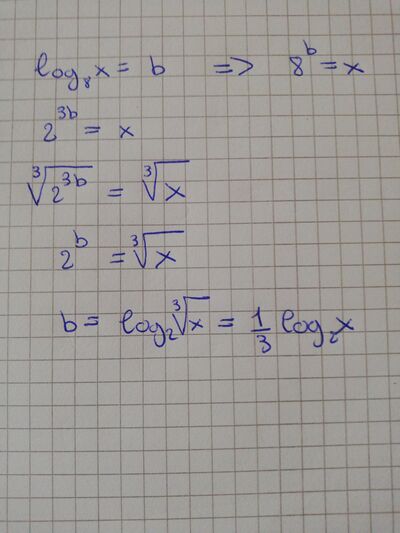 log₈x = b => 8ᵇ = x
2³ᵇ = x
∛(2³ᵇ) = ∛x
2ᵇ = ∛x
b = log₂∛x = 1/3 log₂x